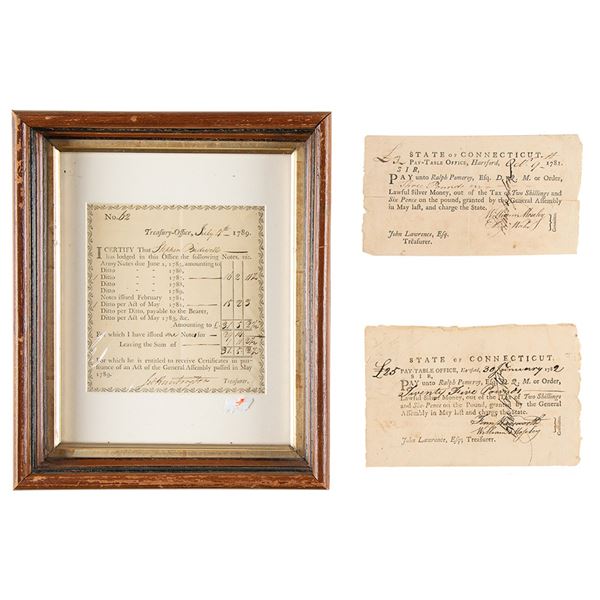 No. 62
Treasury-Office, July 4th 1789.
I CERTIFY That Stephen
has lodged in this Office the following Notes, viz.
Army Notes due June 1, 1785, amounting to
Ditto 1786,
Ditto 1787,
Ditto 1788,
Ditto 1789,
Notes issued February 1781,
Ditto per Act of May 1781, 15 2 3
Ditto per Ditto, payable to the Bearer,
Ditto per Act of May 1783, &c.
Amounting to £ 31 5
For which I have issued one Notes for
Leaving the Sum of
31 5
For which he is entitled to receive Certificates in pur-
suance of an Act of the General Assembly passed in May
1789.
Treasurer.
STATE OF CONNECTICUT.
£3 PAY-TABLE OFFICE, Hartford, Oct. 1781.
SIR,
PAY unto Ralph Pomeroy, Esq. D. Q. M. or Order,
Three Pounds
Lawful Silver Money, out of the Tax of Two Shillings and
Six Pence on the pound, granted by the General Assembly
in May last, and charge the State.
William Mosely
John Lawrence, Esq.
Treasurer.
STATE OF CONNECTICUT.
£25 PAY-TABLE OFFICE, Hartford, 30 January 1782
SIR,
PAY unto Ralph Pomeroy, Esq; D. Q. M. or Order,
Twenty Five Pounds
Lawful Silver Money, out of the Tax of Two Shillings
and Six-Pence on the Pound, granted by the General
Assembly in May last and charge the State.
Fenn Wadsworth
William Mosely
John Lawrence, Esq; Treasurer.